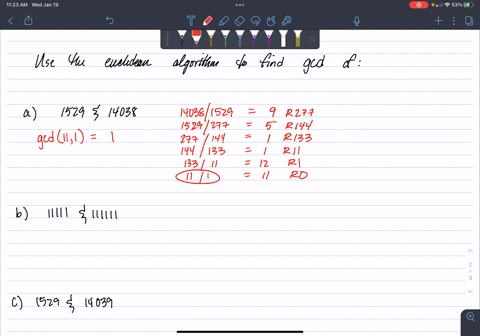 11:23 AM Wed Jan 19
53%
Use the euclidean algorithm to find gcd of:
a) 1529 & 14038
14038/1529 = 9 R277
1529/277 = 5 R144
gcd(11,1) = 1
277/144 = 1 R133
144/133 = 1 R11
133/11 = 12 R1
11/1 = 11 R0
b) 11111 & 111111
2
/
3
c) 1529 & 14039